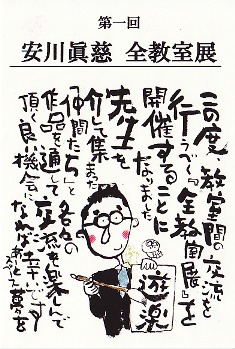 第一回
安川眞慈 全教室展
この度、教室間の交流を
行うべく「全教室展」を
開催することに
なりました。
先生を
介して集まった
「仲間たち」と各々の
作品を通して交流を楽しんで
頂く良い機会に
なれば幸いです
あとは夢を
遊楽